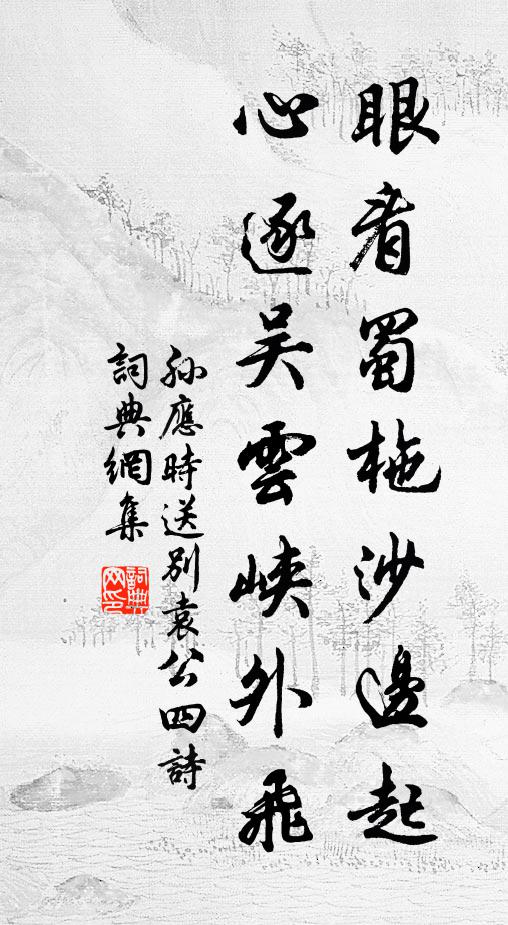 眼看蜀柂沙邊起
心逐吳雲峽外飛
孫應時送別袁公四詩
詞典網集
詞典网印